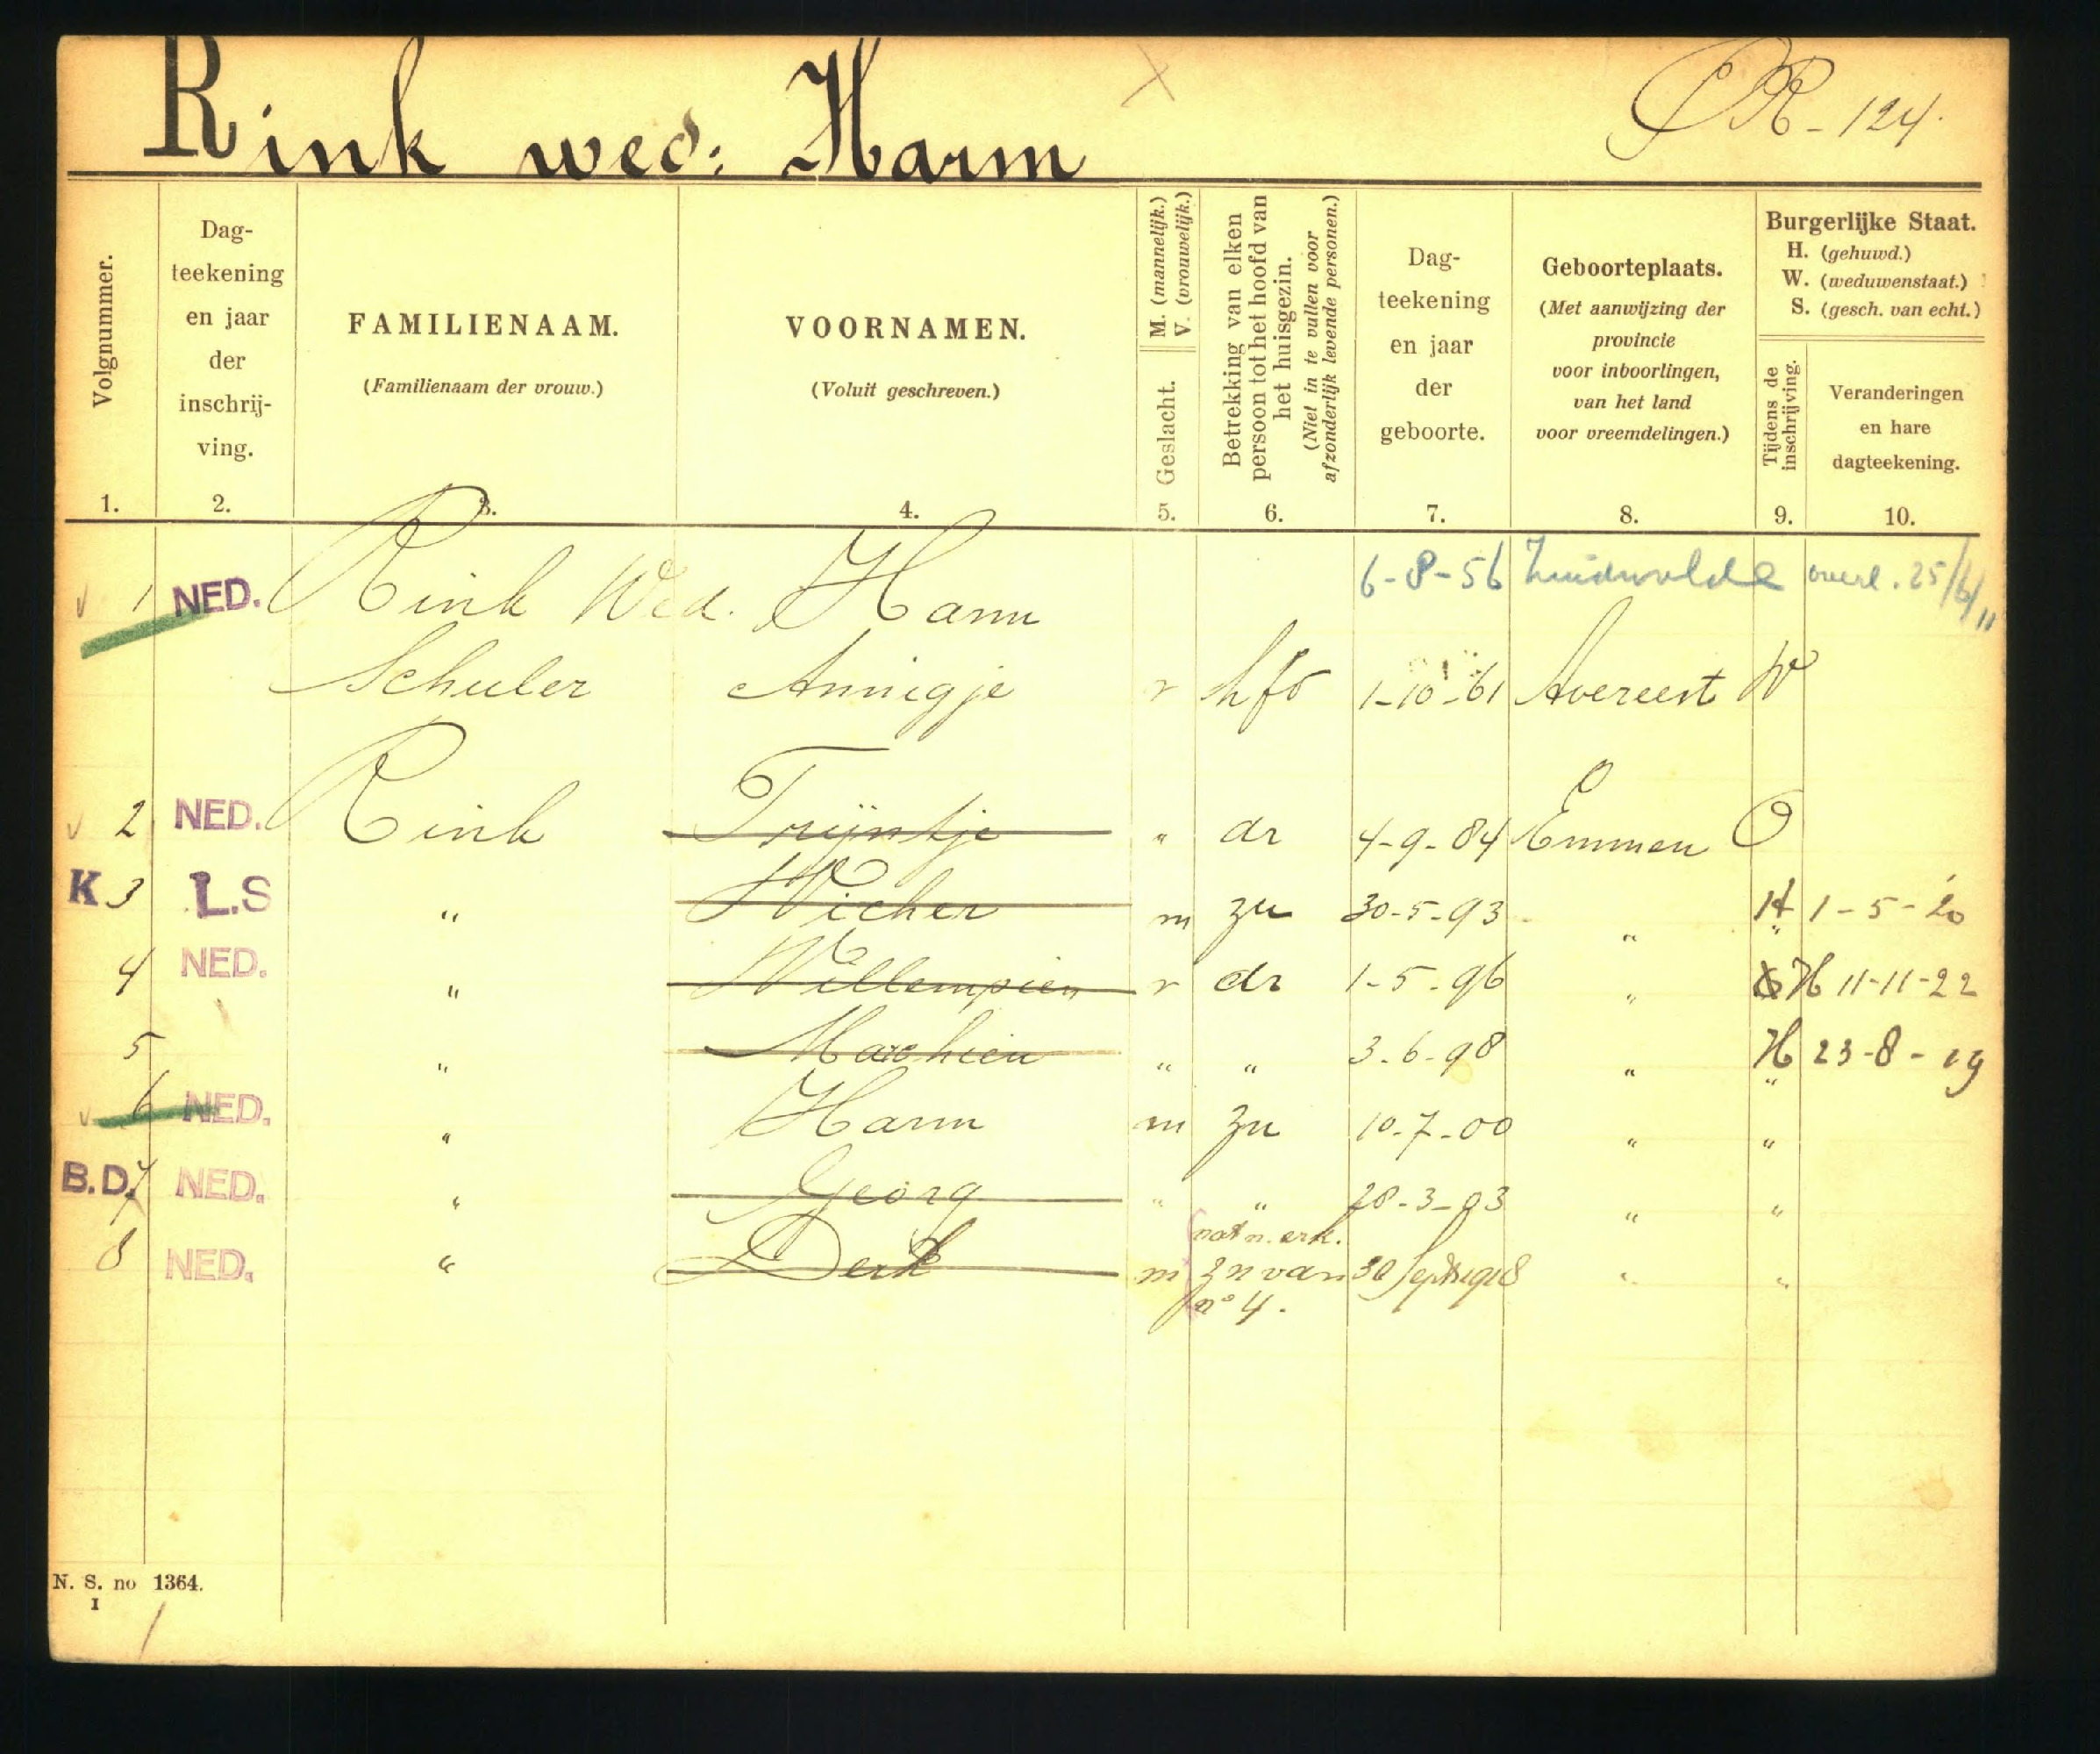 Rink wed: Harm
R - 124.
Volgnummer.
Dag-
teekening
en jaar
der
inschrij-
ving.
FAMILIENAAM.
(Familienaam der vrouw.)
VOORNAMEN.
(Voluit geschreven.)
M. (mannelijk.)
V. (vrouwelijk.)
Geslacht.
Betrekking van elken
persoon tot het hoofd van
het huisgezin.
(Niet in te vullen voor
afzonderlijk levende personen.)
Dag-
teekening
en jaar
der
geboorte.
Geboorteplaats.
(Met aanwijzing der
provincie
voor inboorlingen,
van het land
voor vreemdelingen.)
Burgerlijke Staat.
H. (gehuwd.)
W. (weduwenstaat.)
S. (gesch. van echt.)
Tijdens de
inschrijving.
Veranderingen
en hare
dagteekening.
1. 2. 3. 4. 5. 6. 7. 8. 9. 10.
1 NED. Rink Wed. Harm 6-8-56 Zuidwolde overl. 25/6/11
Schuler Annigje v hfd 1-10-61 Avereest W
2 NED. Rink Trijntje " dr 4-9-84 Emmen O
K 3 L.S " Wicher m zn 30-5-93 " H 1-5-20
4 NED. " Willempien v dr 1-5-96 " H 11-11-22
5 " Marchien " " 3-6-98 " H 23-8-19
6 NED. " Harm m zn 10-7-00 " "
B.D. 7 NED. " Georg " " 28-3-03 " "
nat n. erk.
8 NED. " Derk m zn van 30 Sept 1918 " "
n° 4.
N. S. no 1364.
I